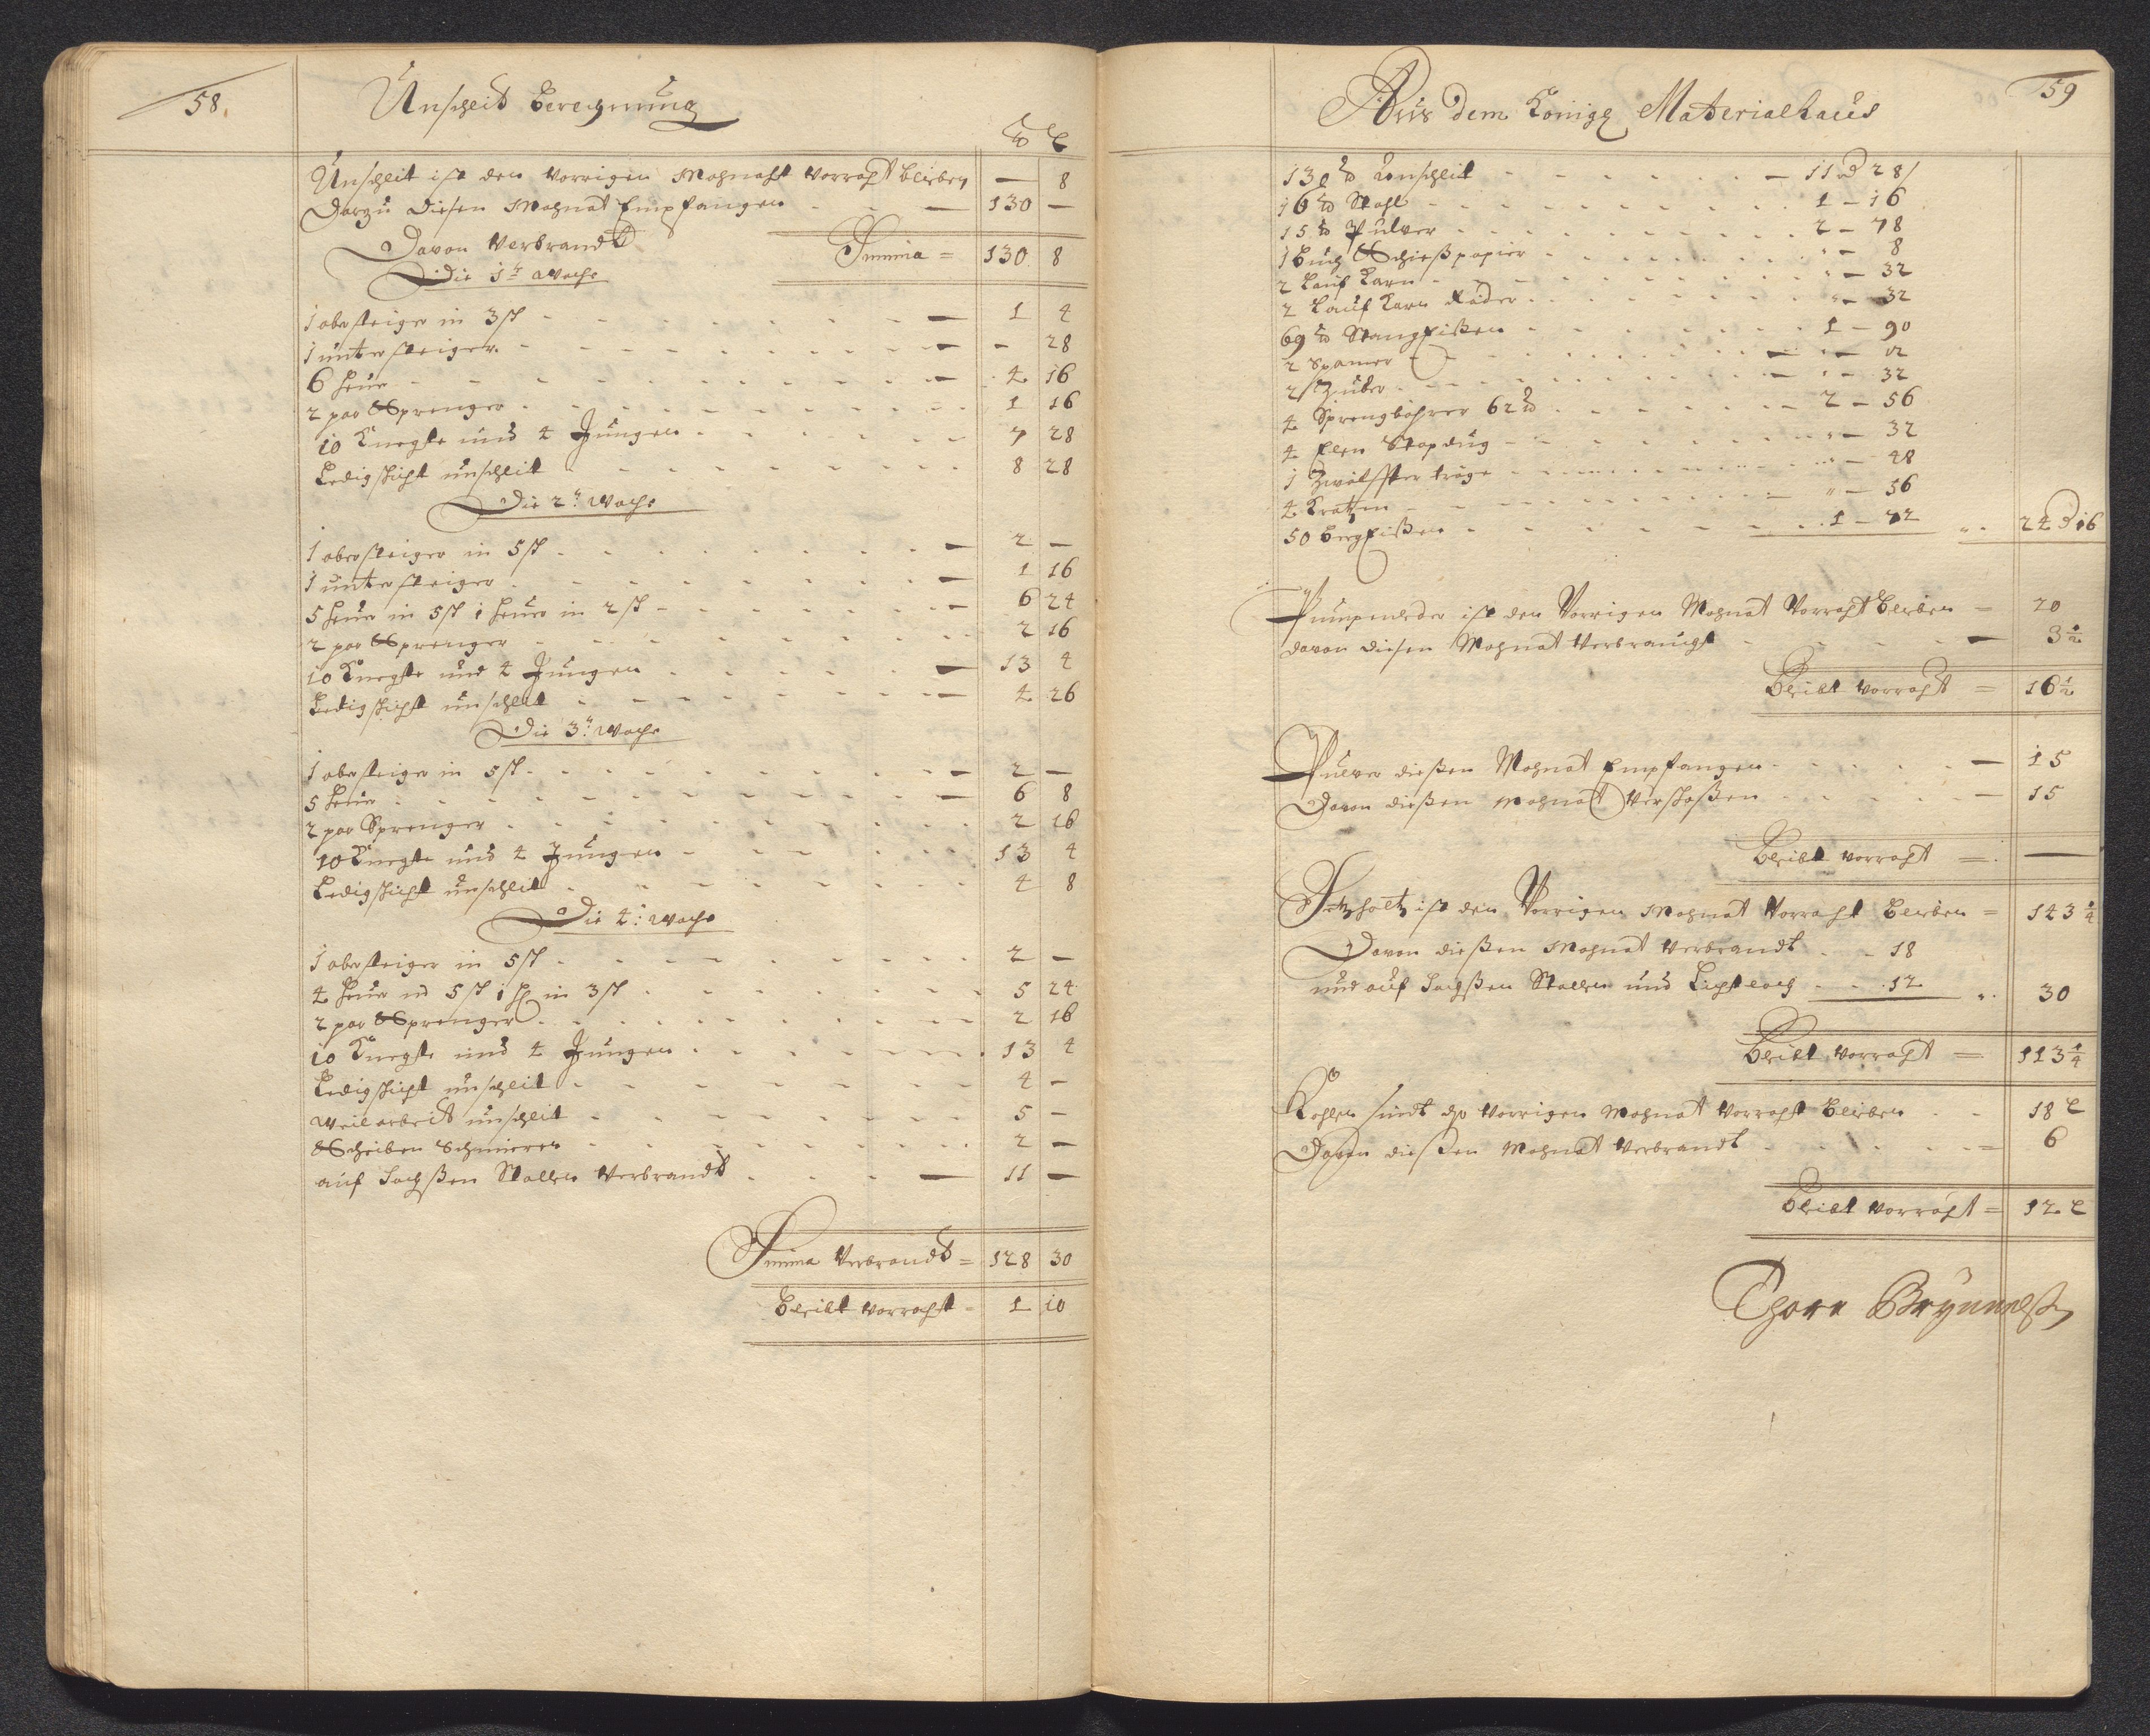 58.
Unschleit berechnung
℔ L
Unschleit ist den vorrigen Mohnaht vorraht bleiben — 8
Darzu diesen Mohnat Empfangen — 130 —
Summa = 130 8
Davon Verbrandt
Die 1te Woche
1 obersteiger in 3 sch — 1 4
1 untersteiger — - 28
6 heur — 4 16
2 par Sprenger 1 16
10 Knegte und 4 Jungen 7 28
Ledigschicht unschleit 8 28
Die 2te Woche
1 obersteiger in 5 sch — 2 —
1 untersteiger — 1 16
5 heur in 5 sch 1 heuer in 2 sch — 6 24
2 par Sprenger 2 16
10 Knegte und 4 Jungen — 13 4
Ledigschicht unschleit — 4 26
Die 3te Woche
1 obersteiger in 5 sch — 2 —
5 heur — 6 8
2 par Sprenger 2 16
10 Knegte und 4 Jungen 13 4
Ledigschicht unschleit 4 8
Die 4te Woche
1 obersteiger in 5 sch 2 —
4 heur in 5 sch 1 H in 3 sch 5 24
2 par Sprenger 2 16
10 Knegte und 4 Jungen 13 4
Ledigschicht unschleit 4 —
Weilarbeit unschleit 5 —
Scheiben Schmieren 2 —
auf Sachßen Stollen Verbrandt — 11 —
Summa Verbrandt = 128 30
Bleibt vorraht = 1 10
59
Aus dem Königl Materialhaus
130 ℔ Unschleit — 11 d 28 /
16 ℔ Stahl 1 - 16
15 ℔ Pulver 2 - 78
1 buch Schießpapier " - 8
2 Lauf Karn " - 32
2 Lauf Karn Räder " - 32
69 ℔ Stangeißen 1 - 90
2 Spanner " - 12
2 Zuber " - 32
4 Sprengbohrer 62 ℔ 2 - 56
4 Elen Stopdug " - 32
1 Zwölffter tröge " - 48
4 Kratzen " - 56
50 bergeißen 1 - 72 24 d 16
Pumpenleder ist den Vorrigen Mohnat Vorraht bleiben = 20
davon diesen Mohnat Verbraucht — 3½
Bleibt vorraht = 16½
Pulver dießen Mohnat Empfangen — 15
Davon dießen Mohnat Verschoßen — 15
Bleibt vorraht = —
Setzholtz ist den Vorrigen Mohnat Vorraht bleiben = 143¼
Davon dießen Mohnat Verbrandt 18
und auf Sachßen Stollen und Lichtloch 12 30
Bleibt vorraht = 113¼
Kohlen sindt den vorrigen Mohnat vorraht bleiben 18 L
Davon dießen Mohnat verbrandt = 6
Bleibt vorraht = 12 L